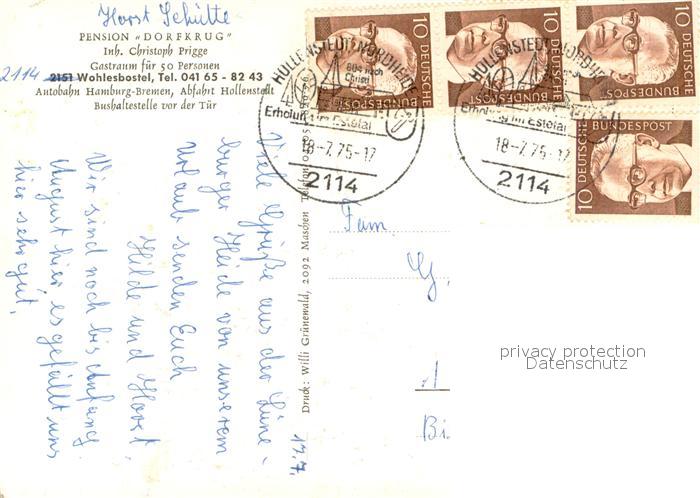 Horst Schütte
PENSION "DORFKRUG"
Inh. Christoph Prigge
Gastraum für 50 Personen
2114 2151 Wohlesbostel, Tel. 041 65 - 82 43
Autobahn Hamburg-Bremen, Abfahrt Hollenstedt
Bushaltestelle vor der Tür
17.7.
Viele Grüße aus der Lüne-
burger Heide von unserem
Urlaub senden Euch
Hilde und Horst.
Wir sind noch bis Anfang
August hier, es gefällt uns
hier sehr gut.
Druck: Willi Grünewald, 2092 Maschen Telefon
10 DEUTSCHE BUNDESPOST
10 DEUTSCHE BUNDESPOST
10 DEUTSCHE BUNDESPOST
10 DEUTSCHE BUNDESPOST
HOLLENSTEDT NORDHEIDE
Erholung im Estetal
18-7.75-17
2114
HOLLENSTEDT NORDHEIDE
Erholung im Estetal
18-7.75-17
2114
Fam.
G.
A
Bi.
privacy protection
Datenschutz